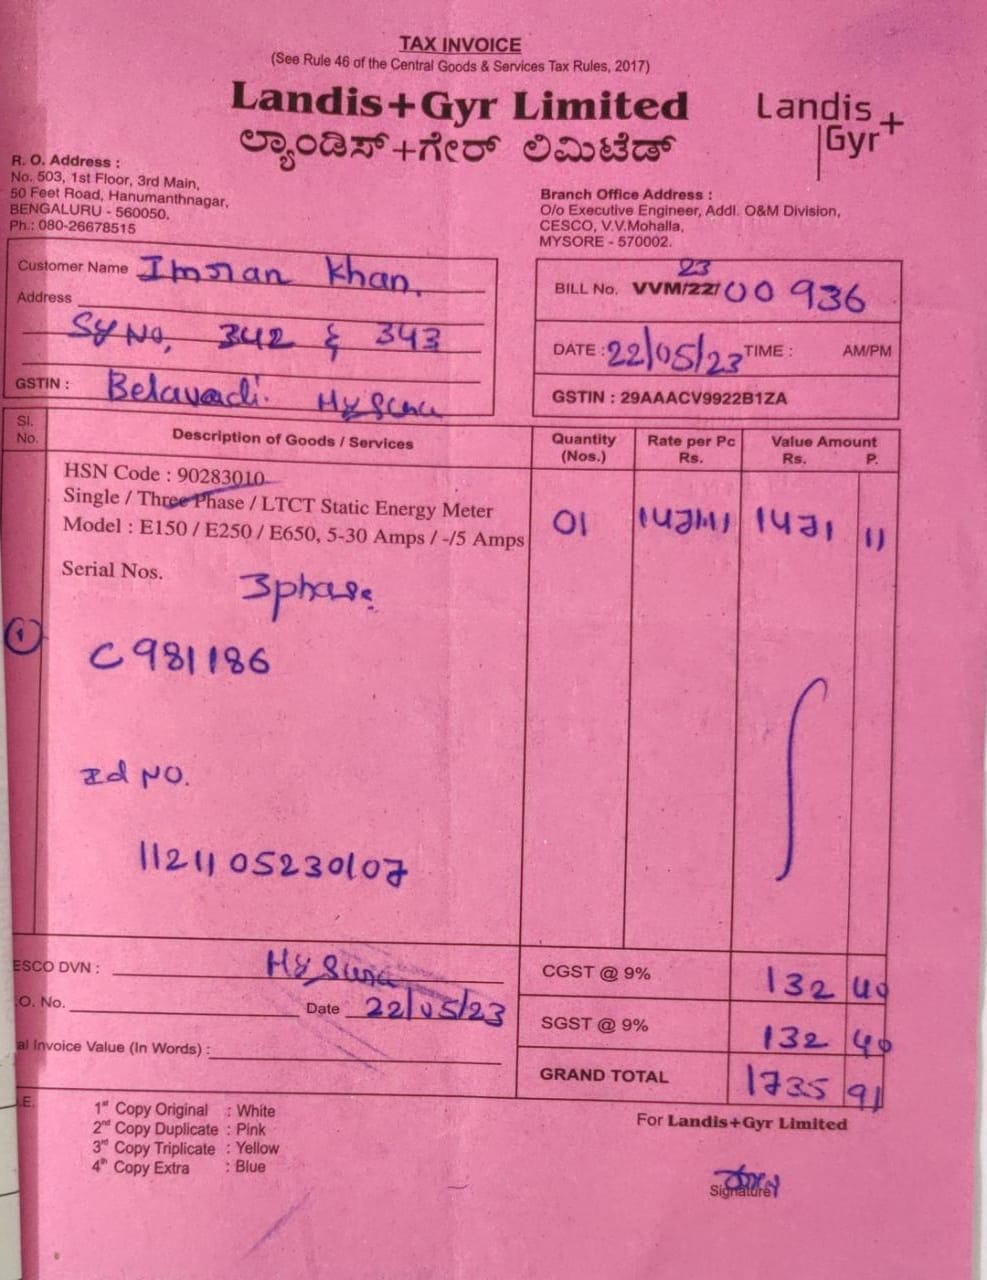 TAX INVOICE
(See Rule 46 of the Central Goods & Services Tax Rules, 2017)
Landis+Gyr Limited
ಲ್ಯಾಂಡಿಸ್+ಗೇರ್ ಲಿಮಿಟೆಡ್
Landis+
Gyr
R. O. Address :
No. 503, 1st Floor, 3rd Main,
50 Feet Road, Hanumanthnagar,
BENGALURU - 560050.
Ph.: 080-26678515
Branch Office Address :
O/o Executive Engineer, Addl. O&M Division,
CESCO, V.V.Mohalla,
MYSORE - 570002.
Customer Name Imran Khan.
Address
Sy No, 342 & 343
GSTIN : Belavadi. Mysuru
23
BILL No. VVM/22/00936
DATE : 22/05/23 TIME : AM/PM
GSTIN : 29AAACV9922B1ZA
Sl. No. Description of Goods / Services Quantity (Nos.) Rate per Pc Rs. Value Amount Rs. P.
HSN Code : 90283010
Single / Three Phase / LTCT Static Energy Meter
Model : E150 / E250 / E650, 5-30 Amps / -/5 Amps
01 1471 11
Serial Nos.
3phase
1
C981186
Id No.
1121105230107
ESCO DVN : Mysuru
.O. No. Date 22/05/23
al Invoice Value (In Words) :
CGST @ 9% 132 40
SGST @ 9% 132 40
GRAND TOTAL 1735 91
.E.
1st Copy Original : White
2nd Copy Duplicate : Pink
3rd Copy Triplicate : Yellow
4th Copy Extra : Blue
For Landis+Gyr Limited
Signature